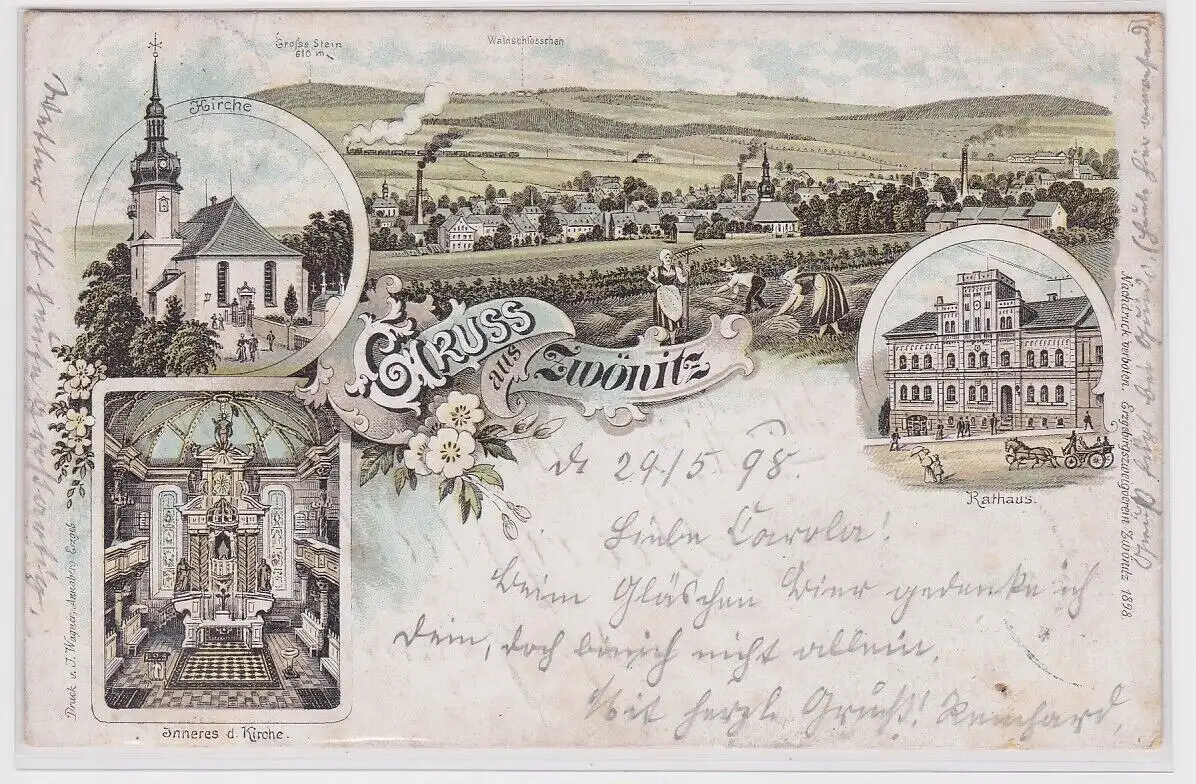 Große Stein
610 m.
Waldschlösschen
Kirche
GRUSS
aus
Zwönitz
Rathaus.
d. 29/5 98.
Liebe Carola!
Beim Gläschen Bier gedenke ich
Dein, doch bin ich nicht allein.
Mit herzl. Gruß Reinhard,
Inneres d. Kirche.
Druck v. J. Wagner, Annaberg Erzgb.
Nachdruck verboten. Erzgebirgszweigverein Zwönitz 1898